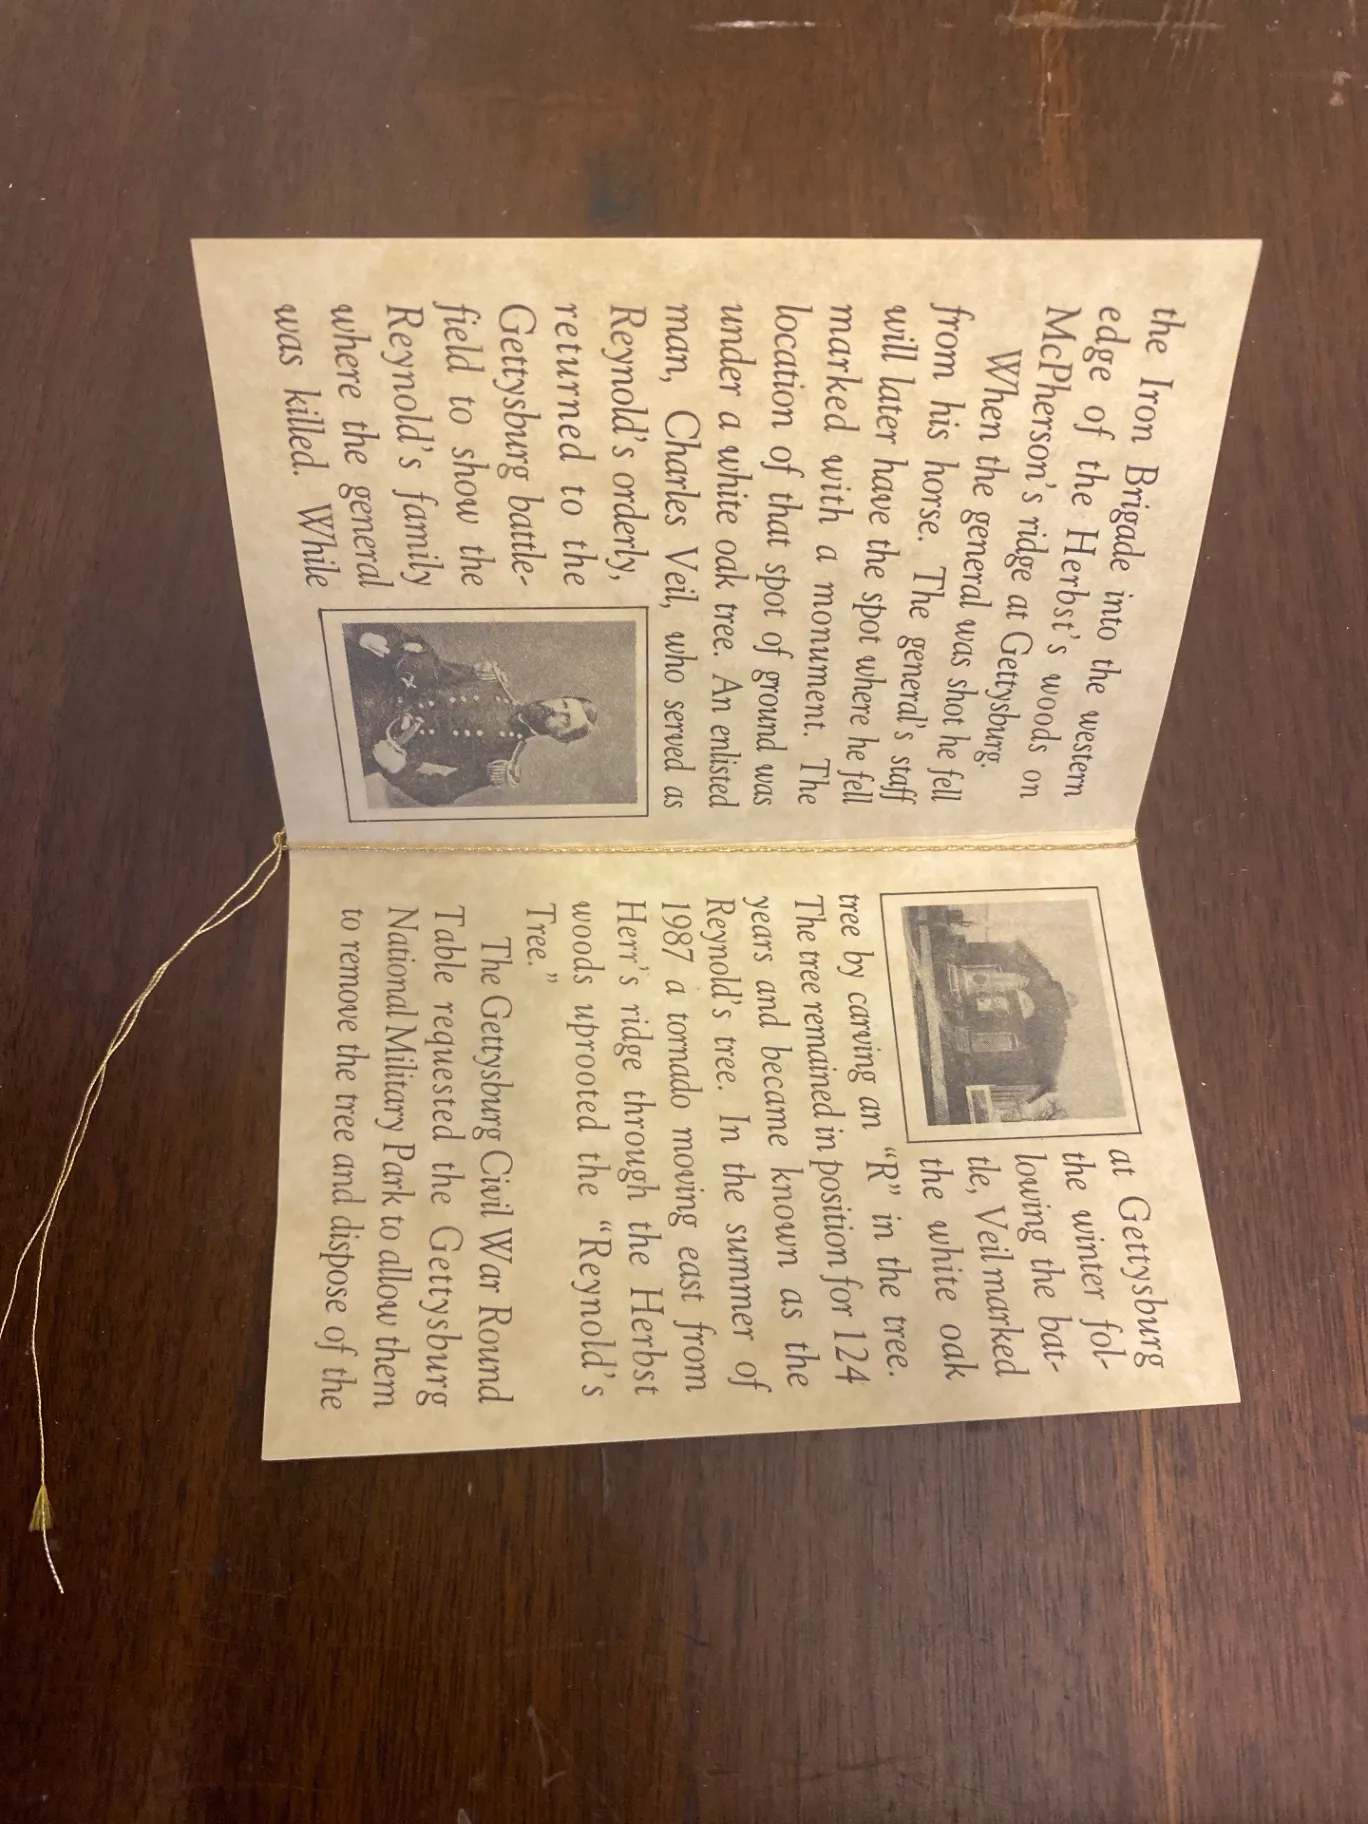 the Iron Brigade into the western
edge of the Herbst's woods on
McPherson's ridge at Gettysburg.
When the general was shot he fell
from his horse. The general's staff
will later have the spot where he fell
marked with a monument. The
location of that spot of ground was
under a white oak tree. An enlisted
man, Charles Veil, who served as
Reynold's orderly,
returned to the
Gettysburg battle-
field to show the
Reynold's family
where the general
was killed. While
at Gettysburg
the winter fol-
lowing the bat-
tle, Veil marked
the white oak
tree by carving an "R" in the tree.
The tree remained in position for 124
years and became known as the
Reynold's tree. In the summer of
1987 a tornado moving east from
Herr's ridge through the Herbst
woods uprooted the "Reynold's
Tree."
The Gettysburg Civil War Round
Table requested the Gettysburg
National Military Park to allow them
to remove the tree and dispose of the